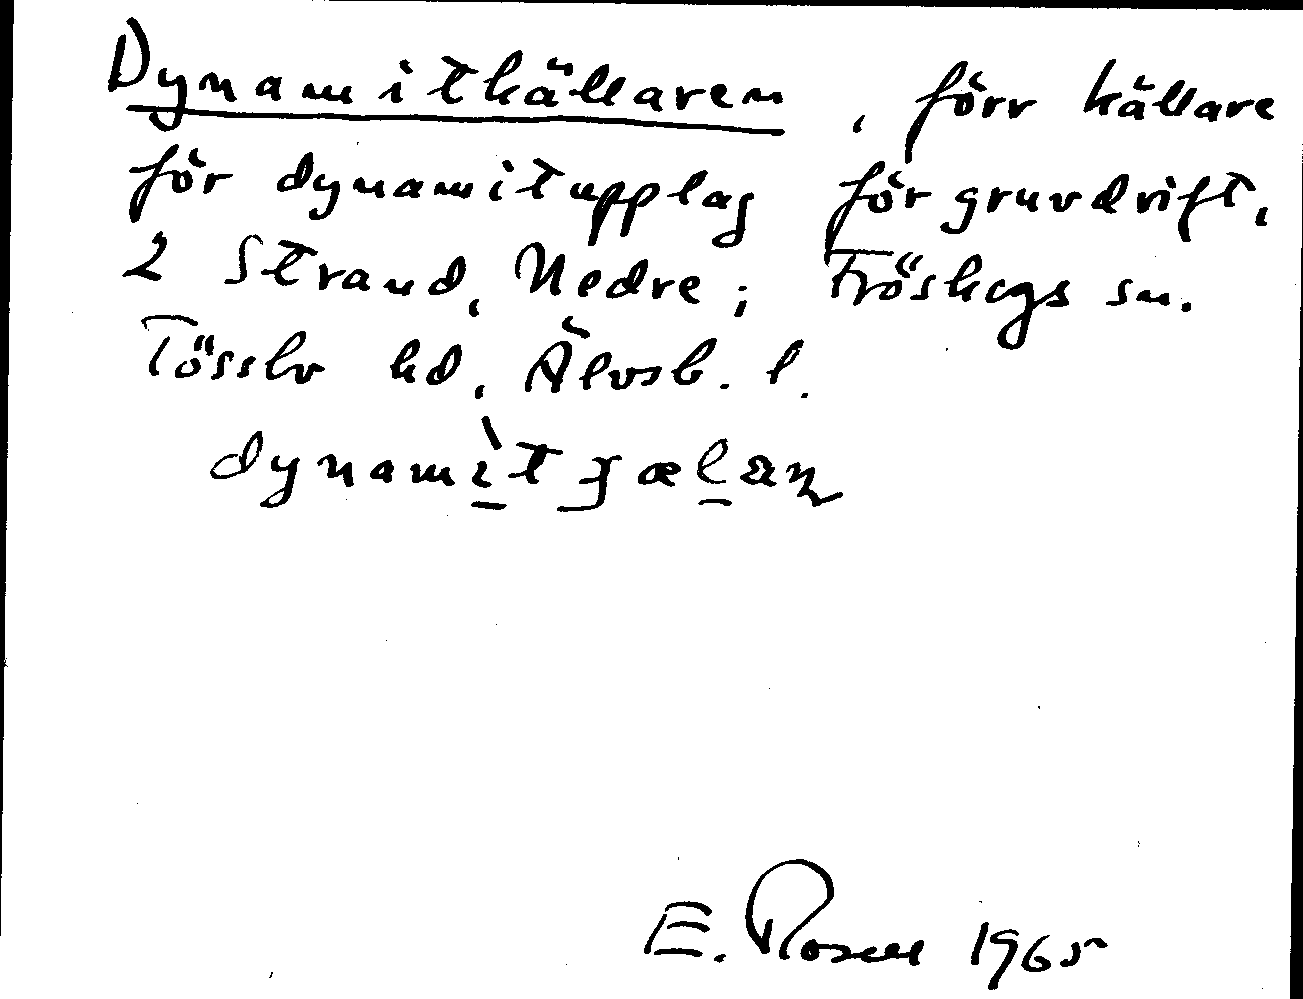 Dynamitkällaren, förr källare
för dynamitupplag för gruvdrift,
2 Strand, Nedre; Fröskogs sn.
Tösslv hd, Älvsb. l.
dynamìt
E. Rosell 1965